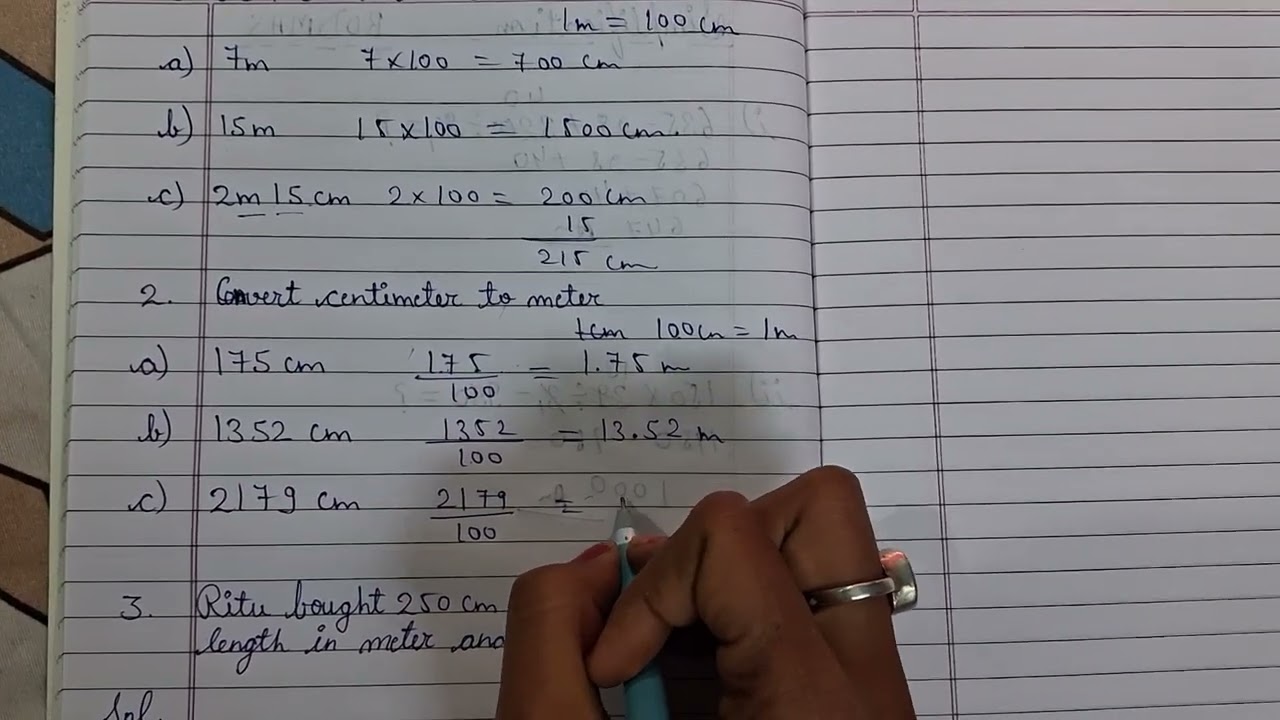 1m = 100 cm
a) 7m 7×100 = 700 cm
b) 15m 15×100 = 1500 cm.
c) 2m 15 cm 2×100 = 200 cm
15
215 cm
2. Convert centimeter to meter
1cm 100cm = 1m
a) 175 cm 175/100 = 1.75 m
b) 1352 cm 1352/100 = 13.52 m
c) 2179 cm 2179/100 =
3. Ritu bought 250 cm
length in meter and
Sol.